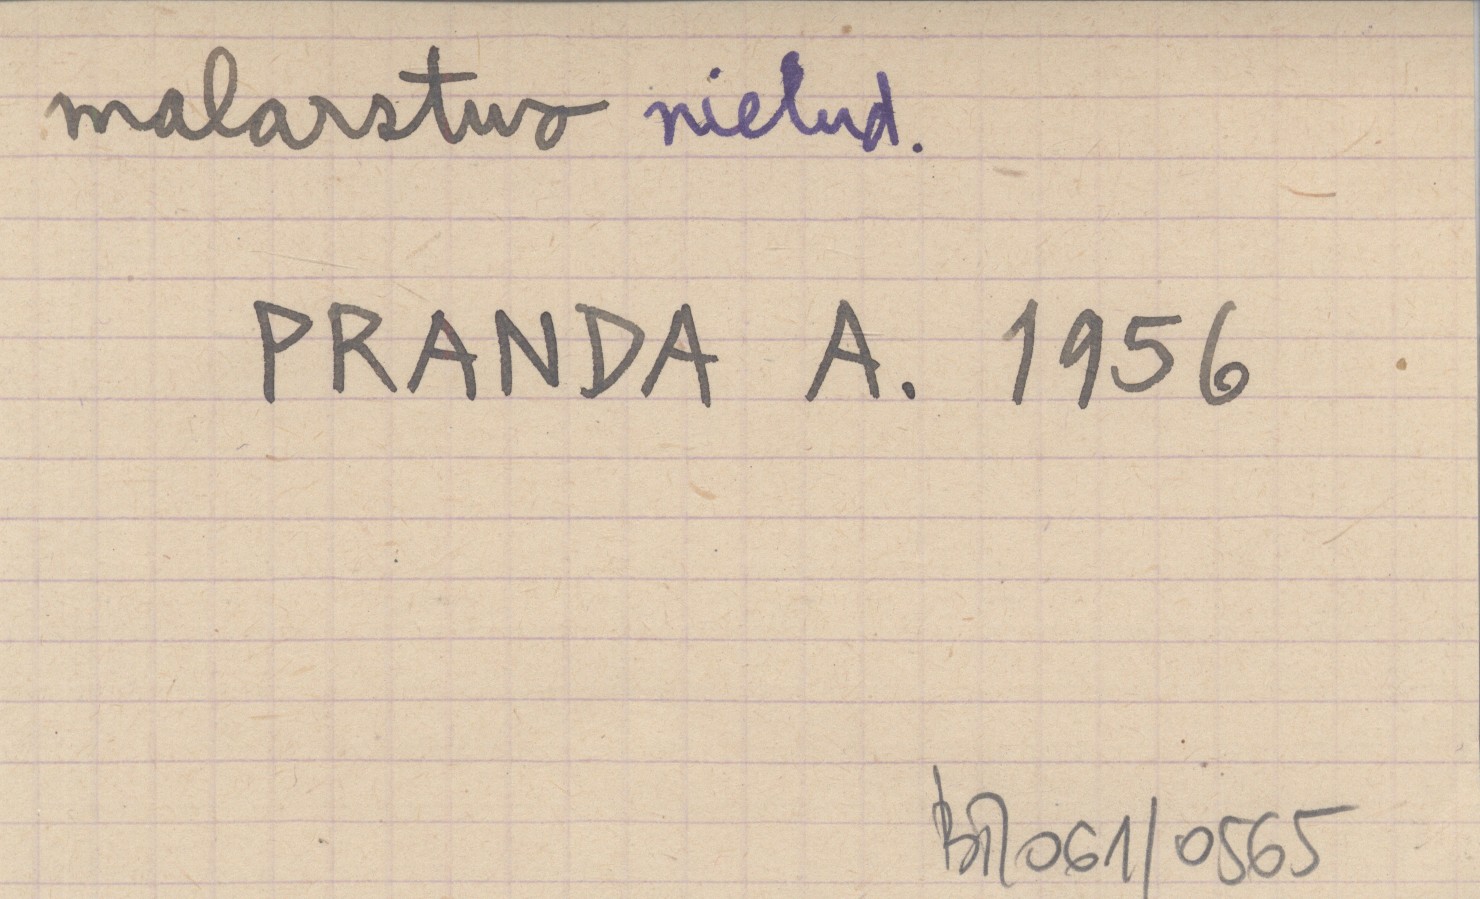 malarstwo nielud.
PRANDA A. 1956
061/0565